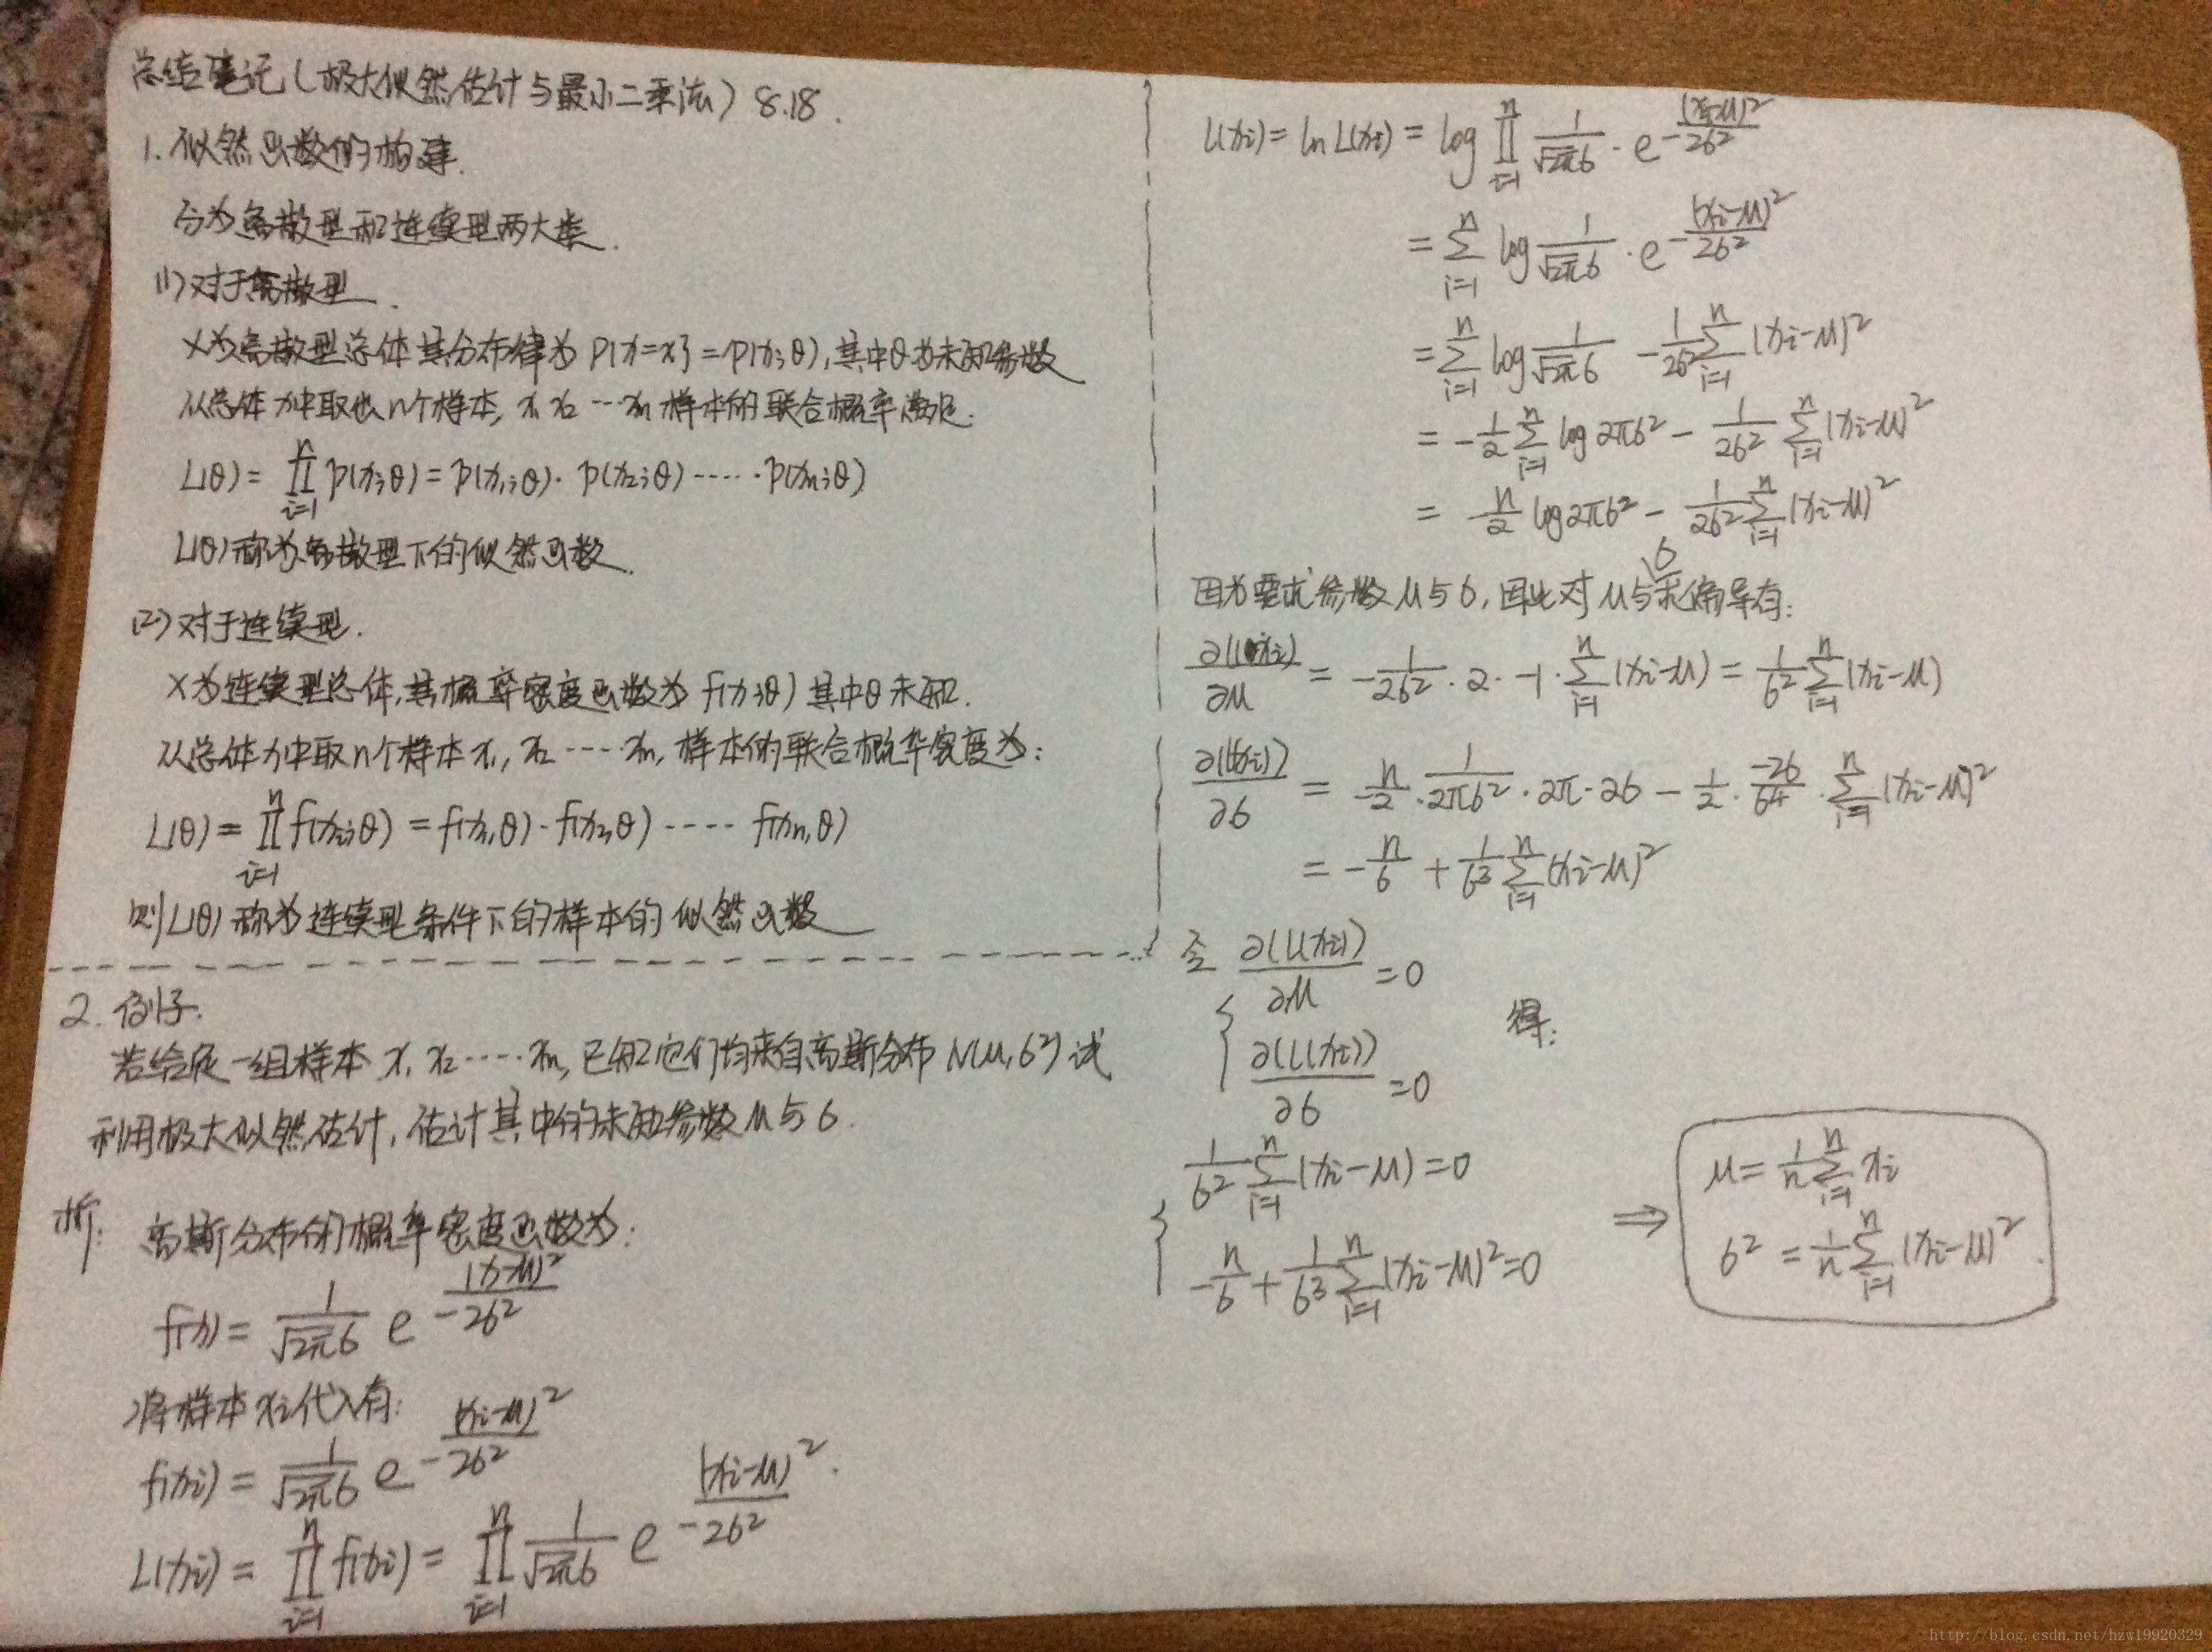 总结笔记(极大似然估计与最小二乘法) 8.18.
1. 似然函数的构建.
分为离散型和连续型两大类.
(1)对于离散型.
X为离散型总体其分布律为 P{x=x}=p(x;θ),其中θ为未知参数
从总体X中取出n个样本, x₁ x₂ ⋯xₙ 样本的联合概率满足:
L(θ)= ∏ᵢ₌₁ⁿ p(x;θ)=p(x₁;θ)· p(x₂;θ)·····p(xₙ;θ)
L(θ)称为离散型下的似然函数.
(2)对于连续型.
X为连续型总体,其概率密度函数为 f(x;θ) 其中θ未知.
从总体X中取n个样本x₁, x₂ ⋯⋅xₙ, 样本的联合概率密度为:
L(θ)= ∏ᵢ₌₁ⁿ f(xᵢ;θ) = f(x₁,θ)·f(x₂,θ)···· f(xₙ,θ)
则L(θ)称为连续型条件下的样本的似然函数
2. 例子.
若给定一组样本 x₁ x₂····xₙ, 已知它们均来自高斯分布N(μ,σ²)试
利用极大似然估计,估计其中的未知参数μ与σ.
析: 高斯分布的概率密度函数为:
f(x)= 1/(√2π σ) e^((x-μ)²/-2σ²)
将样本xᵢ代入有:
f(xᵢ)= 1/(√2π σ) e^(-(xᵢ-μ)²/2σ²)
L(xᵢ)= ∏ᵢ₌₁ⁿ f(xᵢ)= ∏ᵢ₌₁ⁿ 1/(√2π σ) e^((xᵢ-μ)²/-2σ²).
l(xᵢ)= ln L(xᵢ) = log ∏ᵢ₌₁ⁿ 1/(√2π σ)·e^(-(xᵢ-μ)²/2σ²)
= ∑ᵢ₌₁ⁿ log 1/(√2π σ)·e^(-(xᵢ-μ)²/2σ²)
= ∑ᵢ₌₁ⁿ log 1/(√2π σ) - 1/2σ² ∑ᵢ₌₁ⁿ (xᵢ-μ)²
= -1/2 ∑ᵢ₌₁ⁿ log 2πσ² - 1/2σ² ∑ᵢ₌₁ⁿ (xᵢ-μ)²
= -n/2 log2πσ² - 1/2σ² ∑ᵢ₌₁ⁿ (xᵢ-μ)²
因为要求参数μ与σ,因此对μ与σ求偏导有:
∂(l(xᵢ))/∂μ = -1/2σ²·2·-1·∑ᵢ₌₁ⁿ (xᵢ-μ) = 1/σ² ∑ᵢ₌₁ⁿ (xᵢ-μ)
∂(l(xᵢ))/∂σ = -n/2·1/2πσ²·2π·2σ - 1/2·-2σ/σ⁴·∑ᵢ₌₁ⁿ (xᵢ-μ)²
= -n/σ + 1/σ³ ∑ᵢ₌₁ⁿ (xᵢ-μ)²
令 { ∂(l(xᵢ))/∂μ =0
∂(l(xᵢ))/∂σ =0 得:
{ 1/σ² ∑ᵢ₌₁ⁿ (xᵢ-μ)=0
-n/σ + 1/σ³ ∑ᵢ₌₁ⁿ (xᵢ-μ)²=0
⇒ μ= 1/n ∑ᵢ₌₁ⁿ xᵢ
σ² = 1/n ∑ᵢ₌₁ⁿ (xᵢ-μ)².
http://blog.csdn.net/hzw19920329